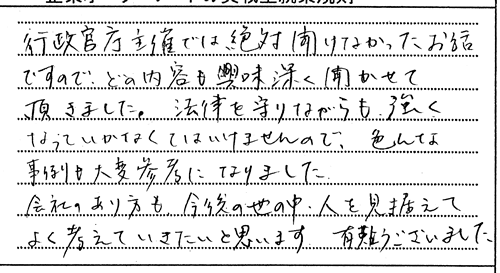 行政官庁主催では絶対聞けなかったお話
ですので、どの内容も興味深く聞かせて
頂きました。法律を守りながらも、強く
なっていかなくてはいけませんので、色んな
事例も大変参考になりました。
会社のあり方も今後の世の中、人を見据えて
よく考えていきたいと思います 有難うございました